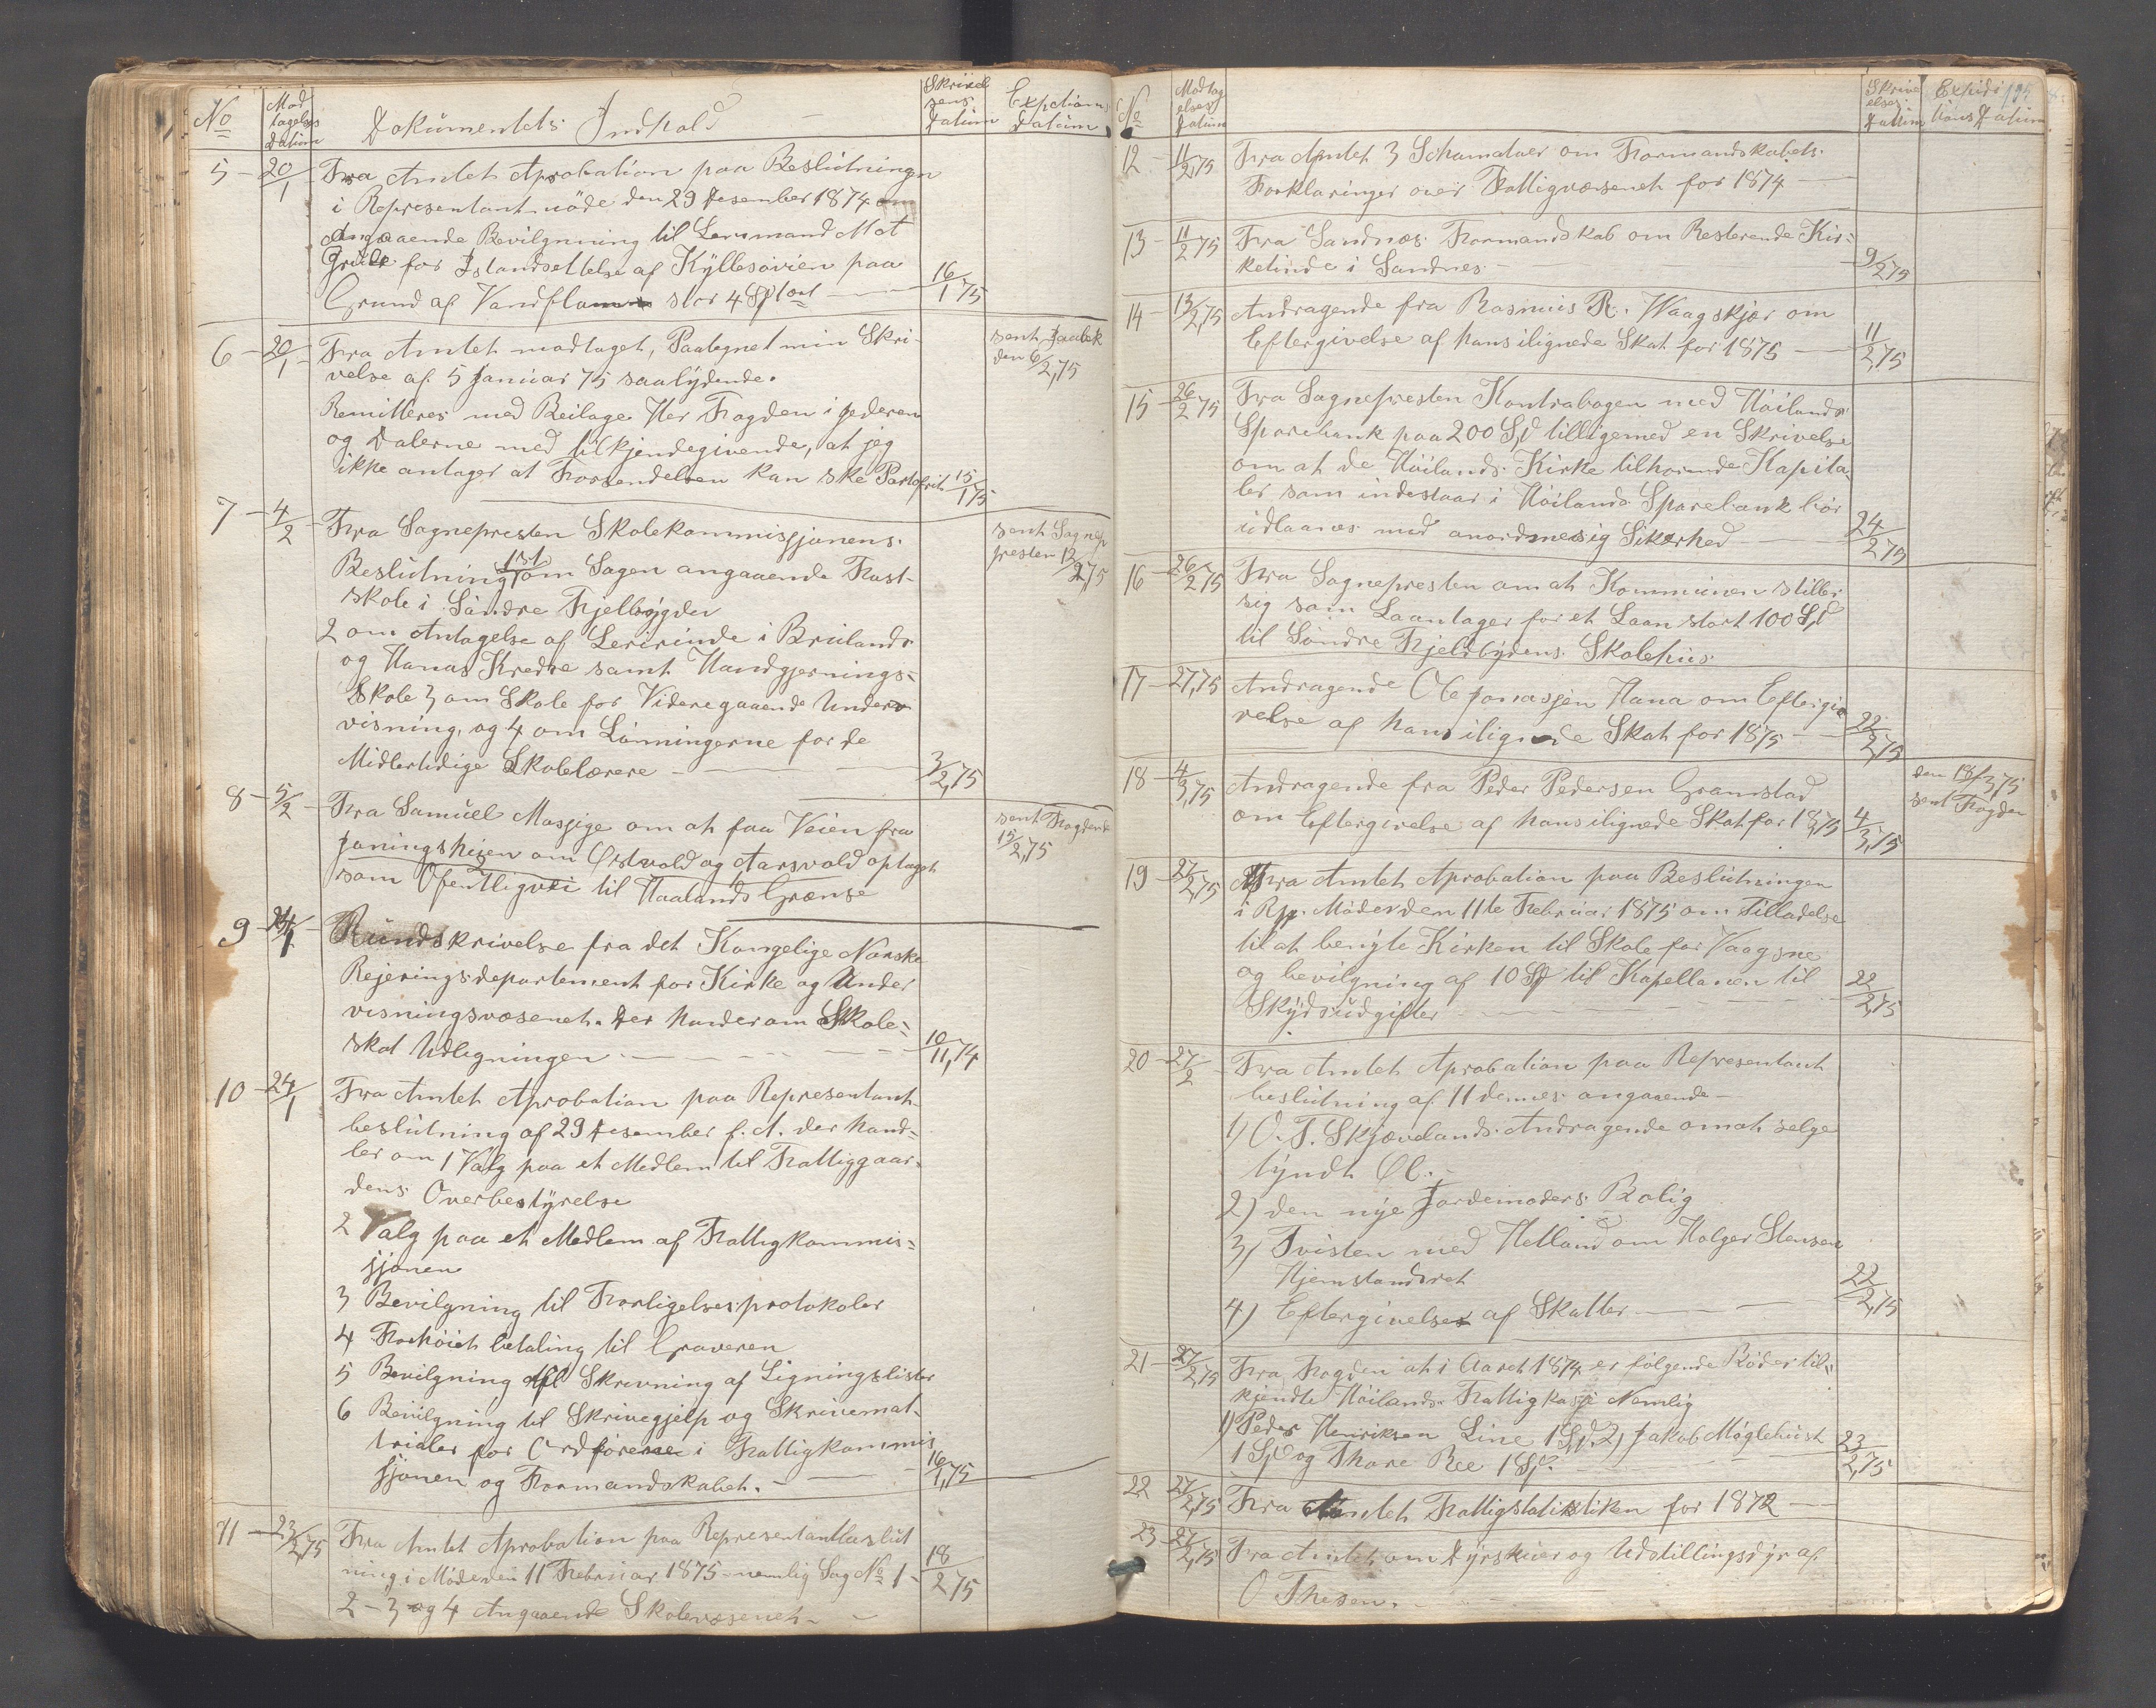 No Mod tagelses Datum Dokumentets Indhold Skrivel sens Datum Expetions Datum
5 - 20/1 - Fra Amtet Aprobation paa Beslutningen
i Representantmöde den 29 Desember 1874 om
Angaaende Bevilgnning til Lensmand
for Istandsettelse af paa
Grund af stor 4 Spd ort 16/1 75
6 - 20/1 - Fra Amtet modtaget, Paategnet min Skri-
velse af 5 Januar 75 saalydende. sent
den 6/2,75
Remitteres med Beilage Her Fogden i Jederen
og Dalerne med tilkjendegivende, at jeg
ikke antager at Forsendelsen kan ske Portofrit 15/1 75
7 - 4/2 - Fra Sognepresten Skolekommissjonens sent Sognep
Beslutning 1st om Sagen angaaende Fast- presten 12/2 75
skole i Söndre Fjellbygder
2 om Antagelse af Lererinde i Brulands
og Hanas Kredse samt Handgjernings-
skole 3 om Skole for Videregaaende Under
visning, og 4 om Lönningerne for de
Midlertidige Skolelærere - 3/2,75
8 - 5/2 - Fra Samuel Massige om at faa Veien fra sent Fogden
Janingsheien om Østvold og Aarsvold optaget 15/2,75
som Ofentligvei til Haalands Grænse
9 - 24/1 Rundskrivelse fra det Kongelige Norske
Rejeringsdepartement for Kirke og Under
visningsvæsenet. Der handler om Skole-
skat Udligningen 10/11,74
10 - 24/1 - Fra Amtet Aprobation paa Representant-
beslutning af 29 Desember f. A. der hand-
ler om 1 Valg paa et Medlem til Fattiggaar-
dens Overbestyrelse
2 Valg paa et Medlem af Fattigkommis-
sjonen
3 Bevilgning til Forligelsesprotokoler
4 Forhöiet betaling til Graveren
5 Bevilgning til Skrivning af Ligningslister
6 Bevilgning til Skrivegjelp og Skrivemat-
rialer for Ordförerne i Fattigkommis
sjonen og Formandskabet. - 16/1,75
11 - 23/2,75 Fra Amtet Aprobation paa Representantbeslut
ning i Möde den 11 Februar 1875 - nemlig Sag No 1 - 18/2 75
2 - 3 og 4 Angaaende Skolevæsenet -
No Modtag elses Datum Skrive elses Datum Expedi tions Datum 195
12 - 11/2,75 Fra Amtet 3 Schamataer om Formandskabets
Forklaringer over Fattigvæsenet for 1874 -
13 - 11/2 75 Fra Sandnes Formandskab om Resterende Kir-
ketiende i Sandnes - 9/2 75
14 - 13/2,75 Andragende fra Rasmus R. Waagskjær om
Eftergivelse af hans ilignede Skat for 1875 - 11/2,75
15 - 26/2 75 Fra Sognepresten Kontrabogen med Höilands
Sparebank paa 200 Spd tilligemed en Skrivelse
om at de Höilands Kirke tilhorende Kapita-
ler som indestaar i Höilands Sparebank bör
udlaanes med anordnesig Sikerhed - 24/2 75
16 - 26/2 75 Fra Sognepresten om at Kommunen stiller
sig som Laantager for et Laan stort 100 Spd
til Söndre Fjeldbydens Skolehus
17 - 27,75 Andragende Ole Jonassen Hana om Eftergi-
velse af hans ilignede Skat for 1875 - 22/2,75
18 - 4/3,75 Andragende fra Peder Pedersen Gramstad den 18/3,75
om Eftergivelse af hans ilignede Skat for 1875 4/3,75 sent Fogden
19 - 27/2,75 Fra Amtet Aprobation paa Beslutningen
i Rp. Möde den 11te Februar 1875 om Tilladelse
til at benyte Kirken til Skole for Vaagsne
og bevilgning af 10 Sp til Kapellanen til
Skydsudgifter 22/2,75
20 - 27/2 - Fra Amtet Aprobation paa Representant
beslutning af 11 dennes angaaende -
1) O. T. Skjævelands Andragende om at selge
tyndt Øl.
2) den nye Jordemoders Bolig
3) Tvisten med Hetland om Holger Stensen
Hjemstandsret
4) Eftergivelse af Skatter 22/2,75
21 - 27/2,75 Fra Fogden at i Aaret 1874 er følgende Böder til-
kjendte Höilands Fattigkasse Nemlig
1) Peder Henriksen Line 1 Spd. 2) Jakob 23/2,75
1 Spd og Thore Ree 1 Sp.
22 27/2,75 Fra Amtet Fattigstatistiken for 1872 -
23 - 27/2,75 Fra Amtet om Dyrskuer og Udstillingsdyr af
O Thesen. -